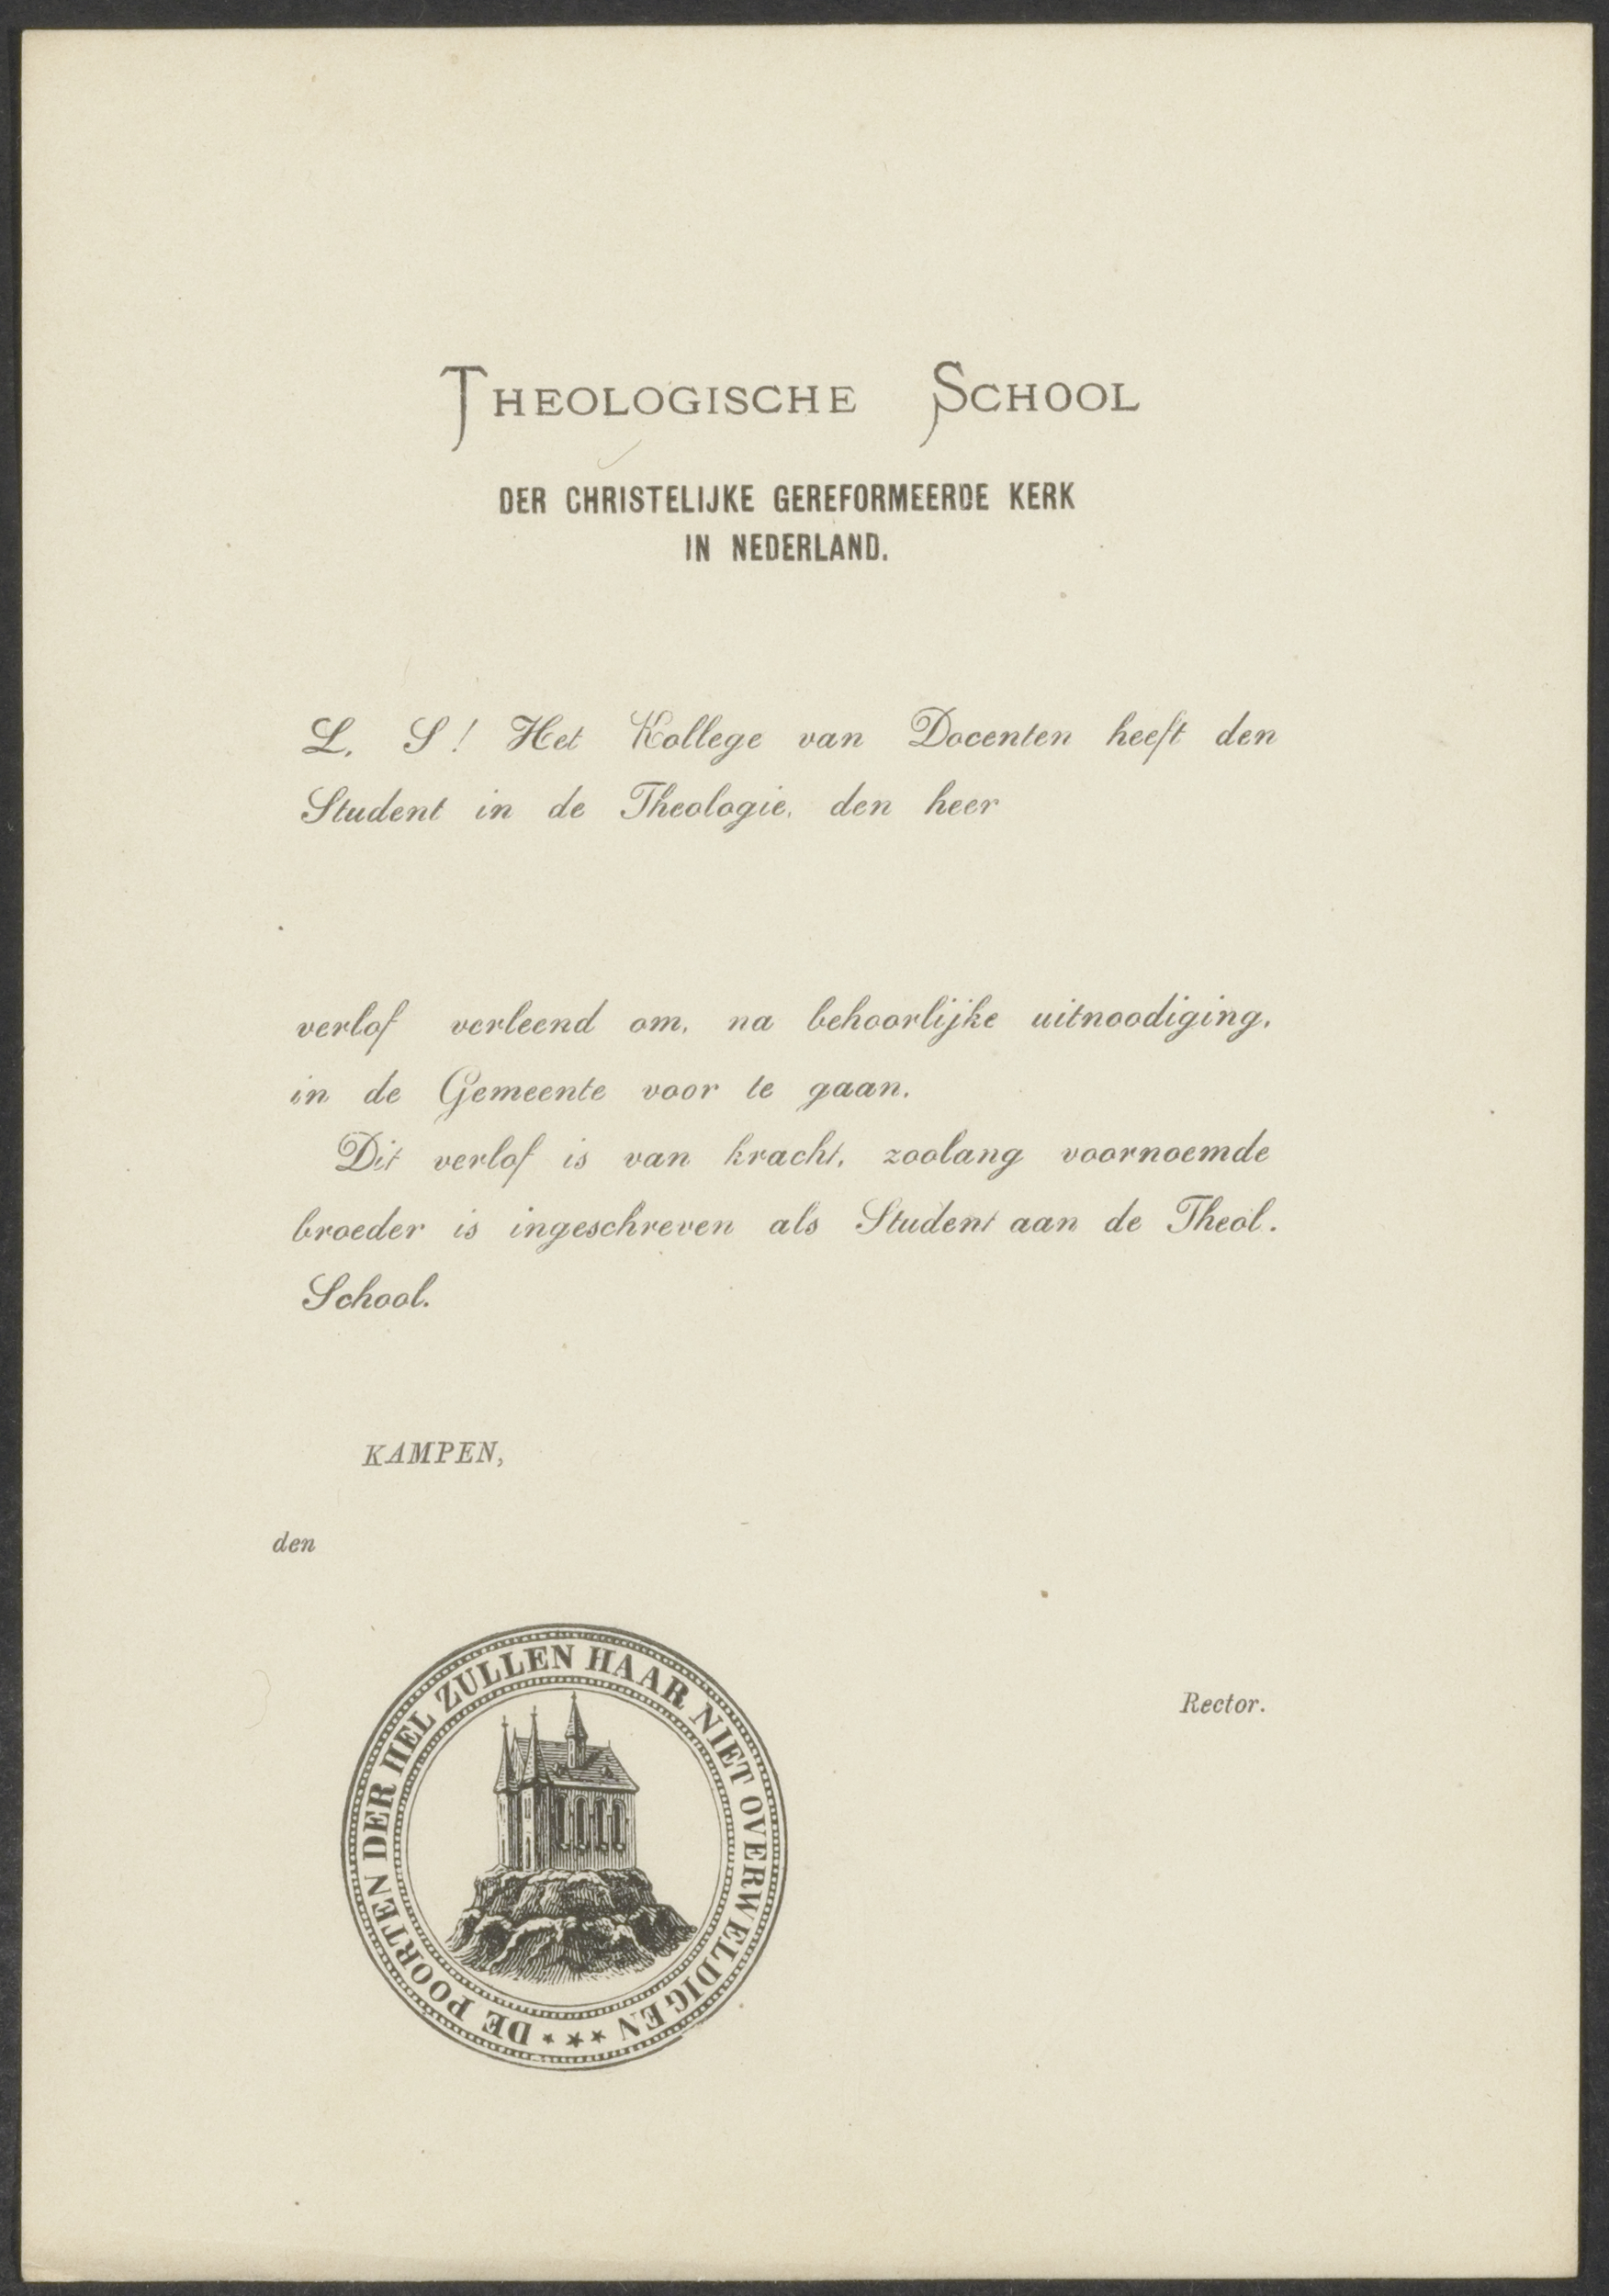 THEOLOGISCHE SCHOOL
DER CHRISTELIJKE GEREFORMEERDE KERK
IN NEDERLAND.
L. S! Het Kollege van Docenten heeft den
Student in de Theologie, den heer
verlof verleend om, na behoorlijke uitnoodiging,
in de Gemeente voor te gaan.
Dit verlof is van kracht, zoolang voornoemde
broeder is ingeschreven als Student aan de Theol.
School.
KAMPEN,
den
Rector.
DE POORTEN DER HEL ZULLEN HAAR NIET OVERWELDIGEN